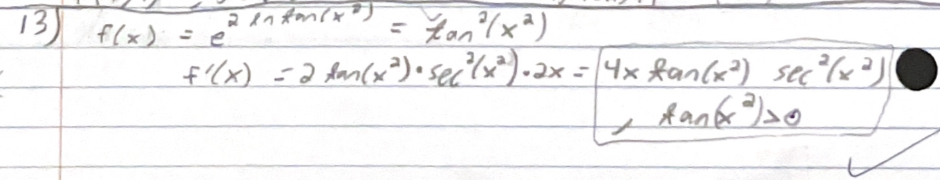 13) f(x) = e^{2 ln tan(x²)} = tan²(x²)
f'(x) = 2 tan(x²)·sec²(x²)·2x = 4x tan(x²) sec²(x²)
, tan(x²)>0